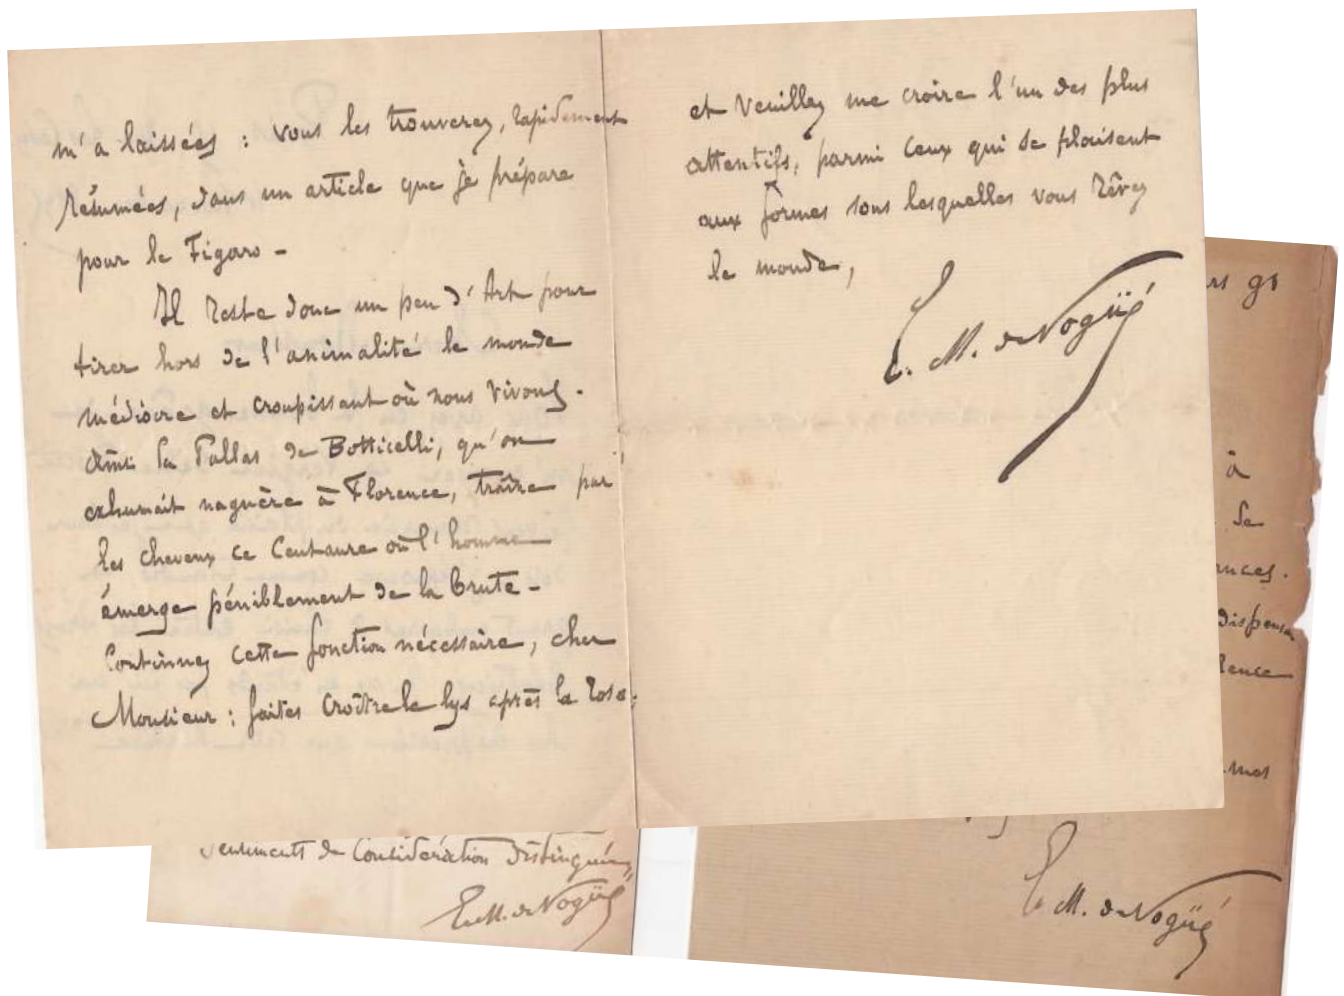 m'a laissées : vous les trouverez, rapidement
résumées, dans un article que je prépare
pour le Figaro -
Il reste donc un peu d'Art pour
tirer hors de l'animalité le monde
médiocre et croupissant où nous vivons.
Ainsi la Pallas de Botticelli, qu'on
exhumait naguère à Florence, traîne par
les cheveux ce Centaure où l'homme
émerge péniblement de la brute -
Continuez cette fonction nécessaire, cher
Monsieur : faites croître le lys après la rose;
et veuillez me croire l'un des plus
attentifs, parmi ceux qui se plaisent
aux formes sous lesquelles vous rêvez
le monde,
E. M. de Vogüé
sentiments de Considération distinguée
E. M. de Vogüé
rs 91
à
la
nces.
dispensa
lence
mot
E. M. de Vogüé